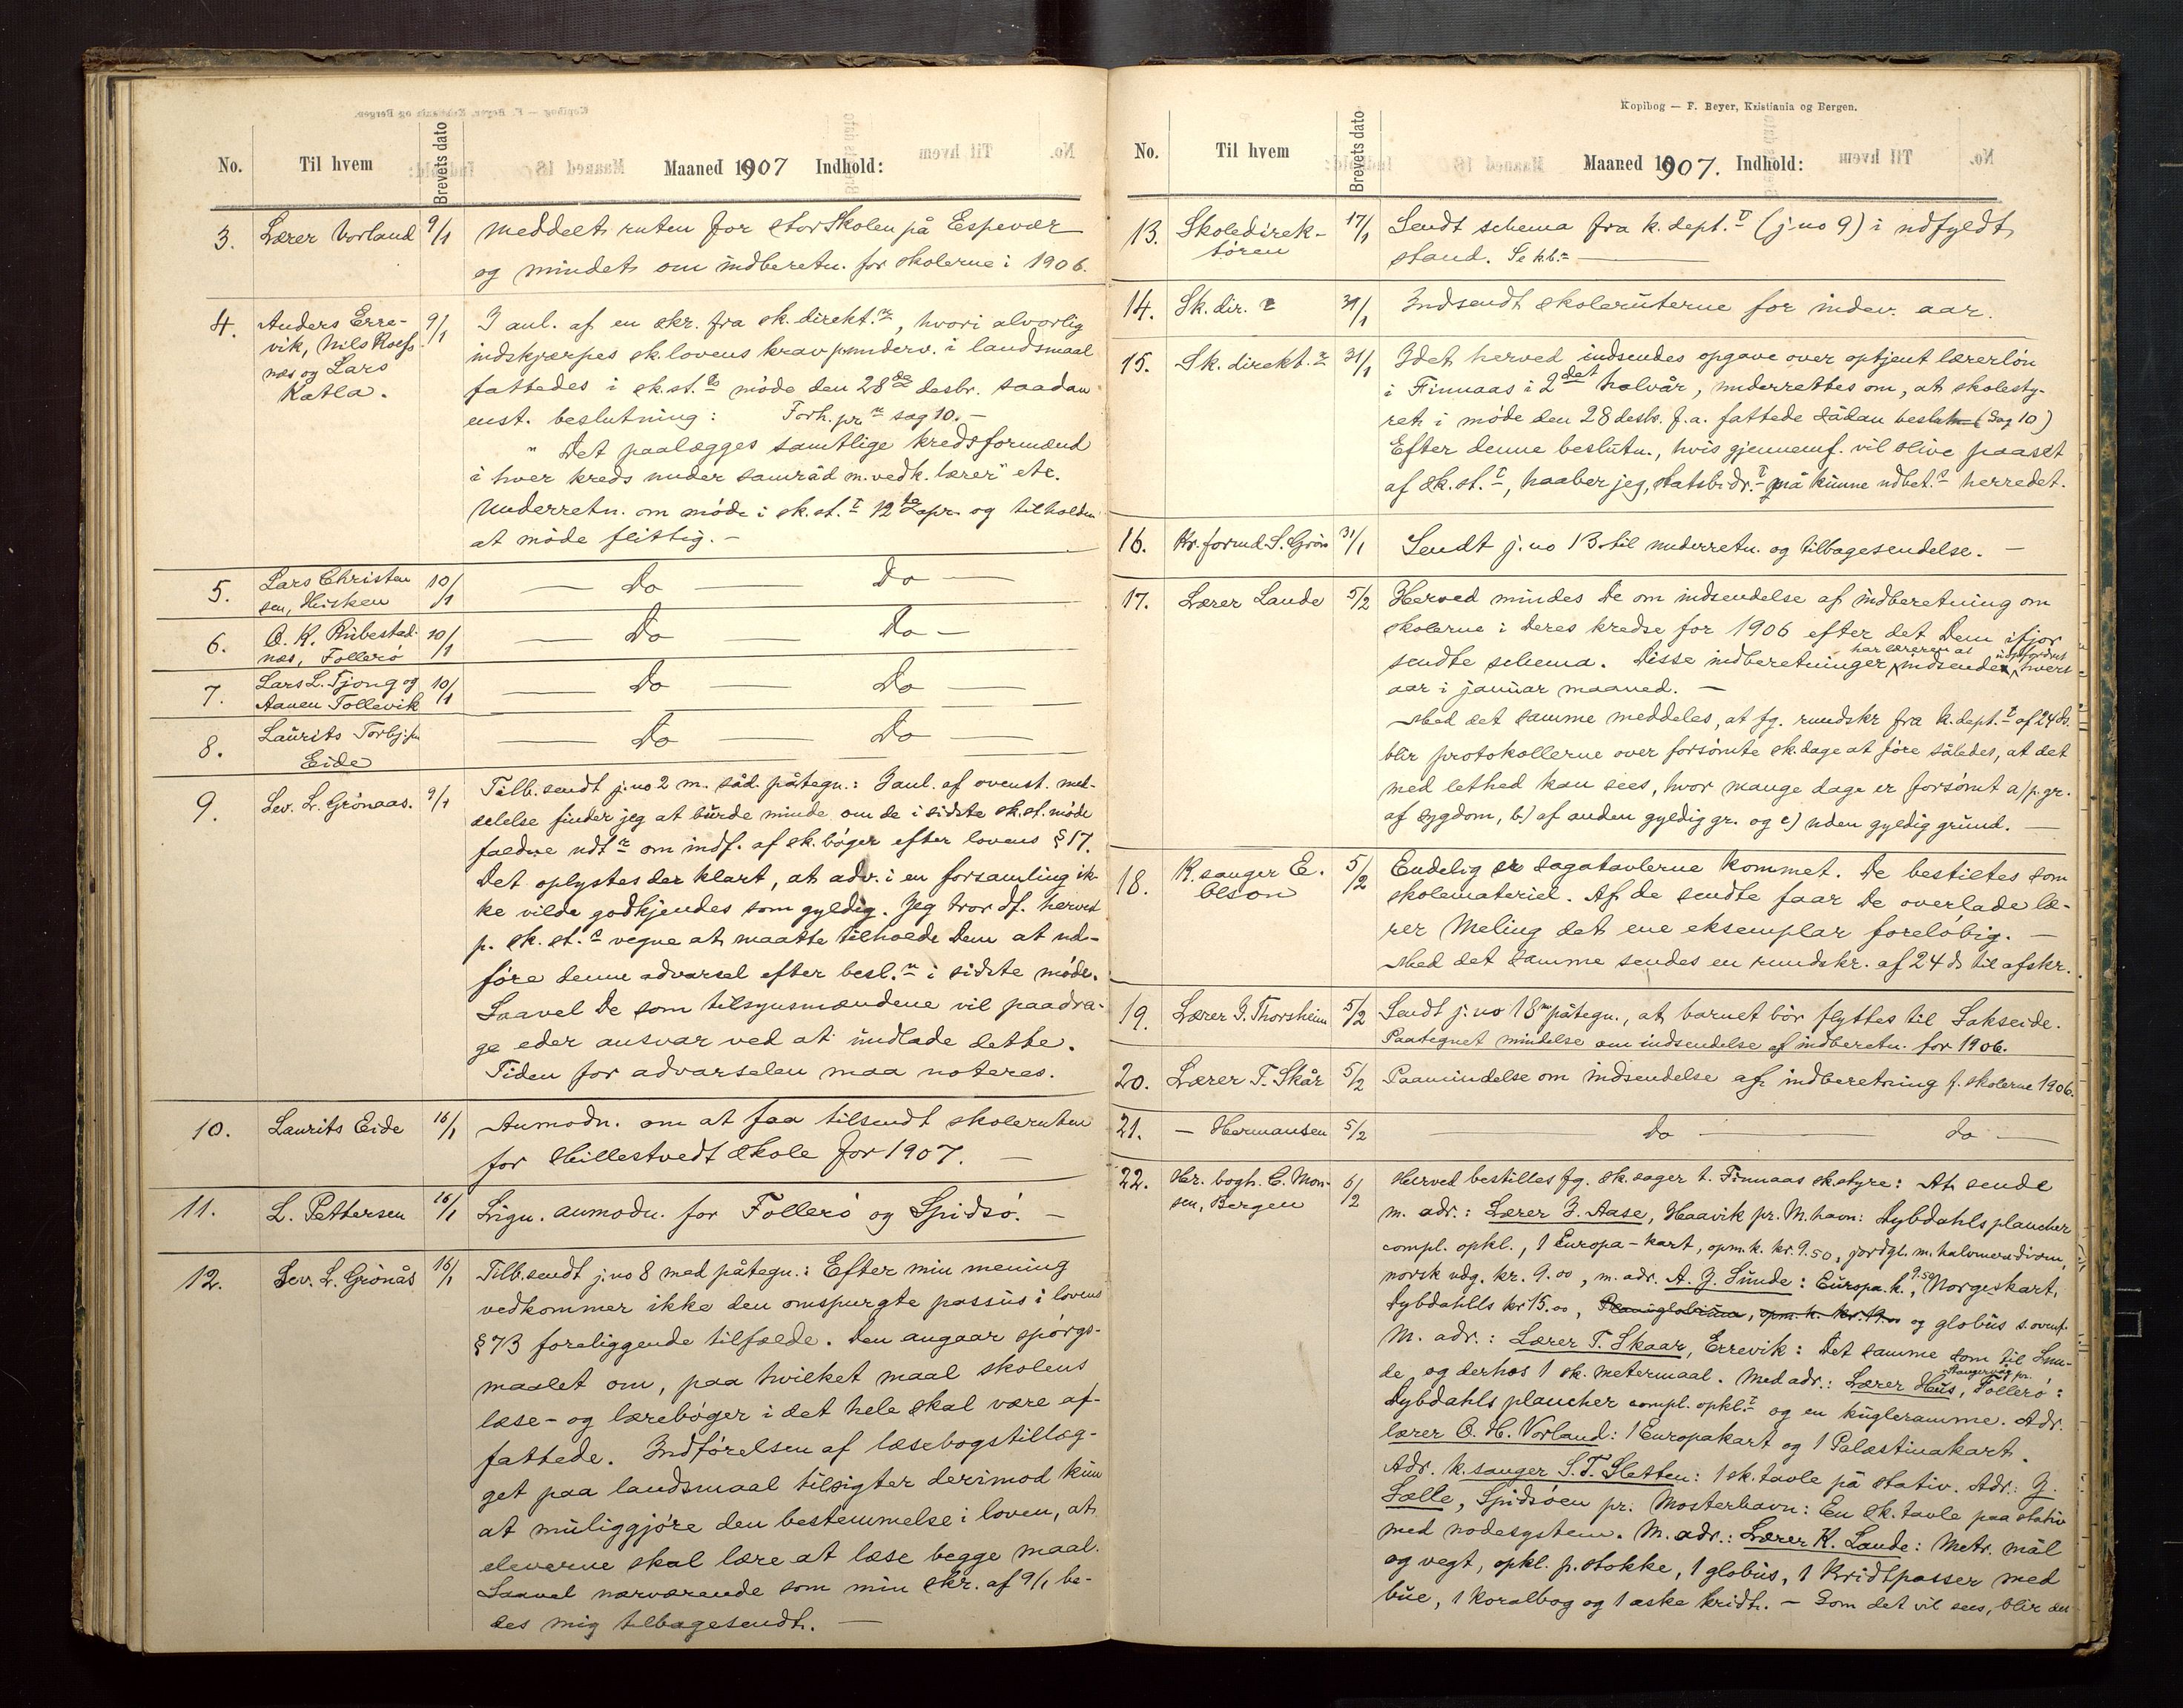 No. Til hvem Brevets dato Maaned 1907 Indhold:
3. Lærer Vorland 9/1 Meddelt ruten for storskolen på Espevær
og mindet om indberetn. for skolerne i 1906.
4. Anders Erre- 9/1 I anl. af en skr. fra sk.direkt.r, hvori alvorlig
vik, Nils Koefs- indskjærpes sk.lovens krav p. underv. i landsmaal
næs og Lars fattedes i sk.st.ts møde den 28de desbr. saadan
Katla. enst. beslutning: Forh. pr sag 10. —
" Det paalægges samtlige kredsformænd
i hver kreds under samråd m. vedk. lærer" etc.
Underretn. om møde i sk.st.t 12te apr. og tilholdn.
at møde flittig. —
5. Lars Christen 10/1 — Do — Do —
sen, Hisken
6. O. K. Rubestad- 10/1 — Do — Do —
næs, Follerö
7. Lars L. Tjong og 10/1 — Do — Do —
Aanen Tollevik
8. Laurits Torbj.sen — Do — Do —
Eide
9. Lev. L. Grönaas. 9/1 Tilb.sendt j.no 2 m. såd. påtegn.: I anl. af ovenst. med-
delelse finder jeg at burde minde om de i sidste sk.st.møde
faldne udt.r om indf. af sk.bøger efter lovens § 17.
Det oplystes der klart, at adv. i en forsamling ik-
ke vilde godkjendes som gyldig. Jeg tror df. herved
p. sk.st.s vegne at maatte tilholde Dem at ud-
føre denne advarsel efter besl.n i sidste møde.
Saavel De som tilsynsmændene vil paadra-
ge eder ansvar ved at undlade dette.
Tiden for advarselen maa noteres.
10. Laurits Eide 16/1 Anmodn. om at faa tilsendt skoleruten
for Hillestvedt skole for 1907. —
11. L. Pettersen 16/1 Lign. anmodn. for Follerö og Spidsö. —
12. Lev. L. Grönås 16/1 Tilb.sendt j.no 8 med påtegn.: Efter min mening
vedkommer ikke den omspurgte passus i lovens
§ 73 foreliggende tilfælde. Den angaar spørgs-
maalet om, paa hvilket maal skolens
læse- og lærebøger i det hele skal være af-
fattede. Indførelsen af læsebogstillæg-
get paa landsmaal tilsigter derimod kun
at muliggjøre den bestemmelse i loven, at
eleverne skal lære at læse begge maal.
Saavel nærværende som min skr. af 9/1 be-
des mig tilbagesendt. —
Kopibog — F. Beyer, Kristiania og Bergen.
No. Til hvem Brevets dato Maaned 1907. Indhold:
13. Skoledirek- 17/1 Sendt schema fra k.dept.t (j.no 9) i udfyldt
tøren stand. Se kb. —
14. Sk.dir. r 31/1 Indsendt skoleruterne for indev. aar.
15. Sk.direkt.r 31/1 Idet herved indsendes opgave over optjent lærerløn
i Finnaas i 2det halvår, underrettes om, at skolesty-
ret i møde den 28 desb. f.a. fattede sådan beslutn. (Sag 10)
Efter denne beslutn., hvis gjennemf. vil blive paaset
af sk.st.t, haaber jeg, statsbidr.t må kunne udbet.s herredet.
16. Kr.formd. S. Grön 31/1 Sendt j.no 13 til underretn. og tilbagesendelse. —
17. Lærer Lande 5/2 Herved mindes De om indsendelse af indberetning om
skolerne i Deres kredse for 1906 efter det Dem ifjor
har læreren at uopfordret
sendte schema. Disse indberetninger indsende hvert
aar i januar maaned. —
Med det samme meddeles, at fg. rundskr fra k.dept.t af 24 ds.
blir protokollerne over forsømte sk.dage at føre således, at det
med lethed kan sees, hvor mange dage er forsømt a) p. gr.
af sygdom, b) af anden gyldig gr. og c) uden gyldig grund. —
18. K.sanger E. 5/2 Endelig er sagatavlerne kommet. De bestiltes som
Olson skolemateriel. Af de sendte faar De overlade læ-
rer Meling det ene eksemplar foreløbig. —
Med det samme sendes en rundskr. af 24 ds til afskr.
19. Lærer J. Thorsheim 5/2 Sendt j.no 18 m påtegn., at barnet bör flyttes til Sakseide.
Paategnet mindelse om indsendelse af indberetn. for 1906.
20. Lærer T. Skår 5/2 Paamindelse om indsendelse af indberetning f. skolerne 1906.
21. — Hermansen 5/2 — do — do —
22. Hr. bogh. C. Mon- 6/2 Herved bestilles fg. sk.sager t. Finnaas sk.styre: At sende
sen, Bergen m. adr.: Lærer J. Aase, Haavik pr. M.havn: Dybdahls plancher
compl. opkl., 1 Europa-kart, opm.k. kr. 9.50, jordgl. m. halvmeridian,
norsk udg. kr. 9.00, m. adr. A. J. Sunde: Europa.k. 9.50, Norgeskart,
Dybdahlls kr 15.00, Planiglobium, opm.k. kr. 19.00 og globus s. ovenf.
M. adr.: Lærer T. Skaar, Errevik: Det samme som til Sun-
de og derhos 1 sk. metermaal. Med adr.: Lærer Hus, Stangervåg pr. Follerö:
Dybdahls plancher compl. opkl.t og en kugleramme. Adr.
lærer O. H. Vorland: 1 Europakart og 1 Palæstinakart.
Adr. k.sanger S. T. Sletten: 1 sk.tavle på stativ. Adr.: J.
Sælle, Spidsöen pr. Mosterhavn: En sk.tavle paa stativ
med nodesystem. M. adr.: Lærer K. Lande: Metr. mål
og vegt, opkl. p. stokke, 1 globus, 1 Kridtpasser med
bue, 1 koralbog og 1 æske kridt. — Som det vil sees, blir der